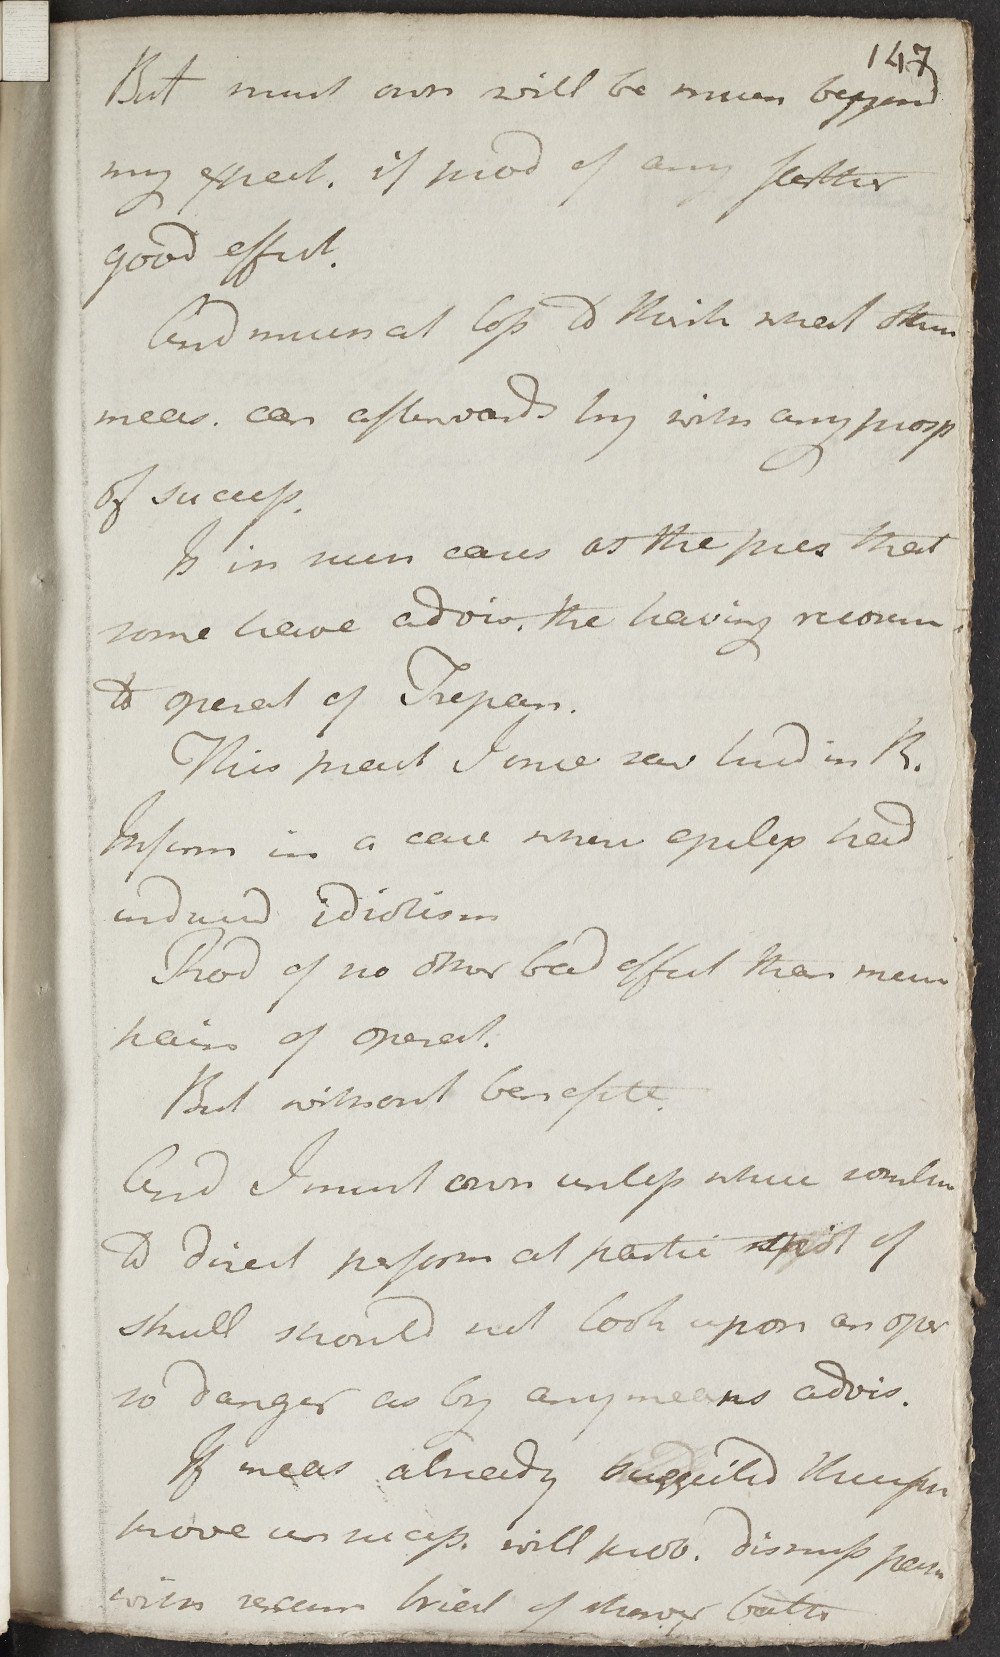 147
But must own will be much beyond
my expect. if prod of any further
good effect.
And much at loss to think what other
meas. can afterwards try with any prosp
of success.
Is in such cases as the pres that
some have advis. the having recours
to operat of Trepan.
This pract I once saw tried in R.
Infirm in a case where epilep had
induced idiotism
Prod of no other bad effect than mere
pain of operat.
But without benefite.
And I must own unless where somthin
to direct perform at partic spot of
skull should not look upon an oper
so danger as by any means advis.
If meas already suggested
prove unsuccess. will prob. dismiss
with tried of shower bath